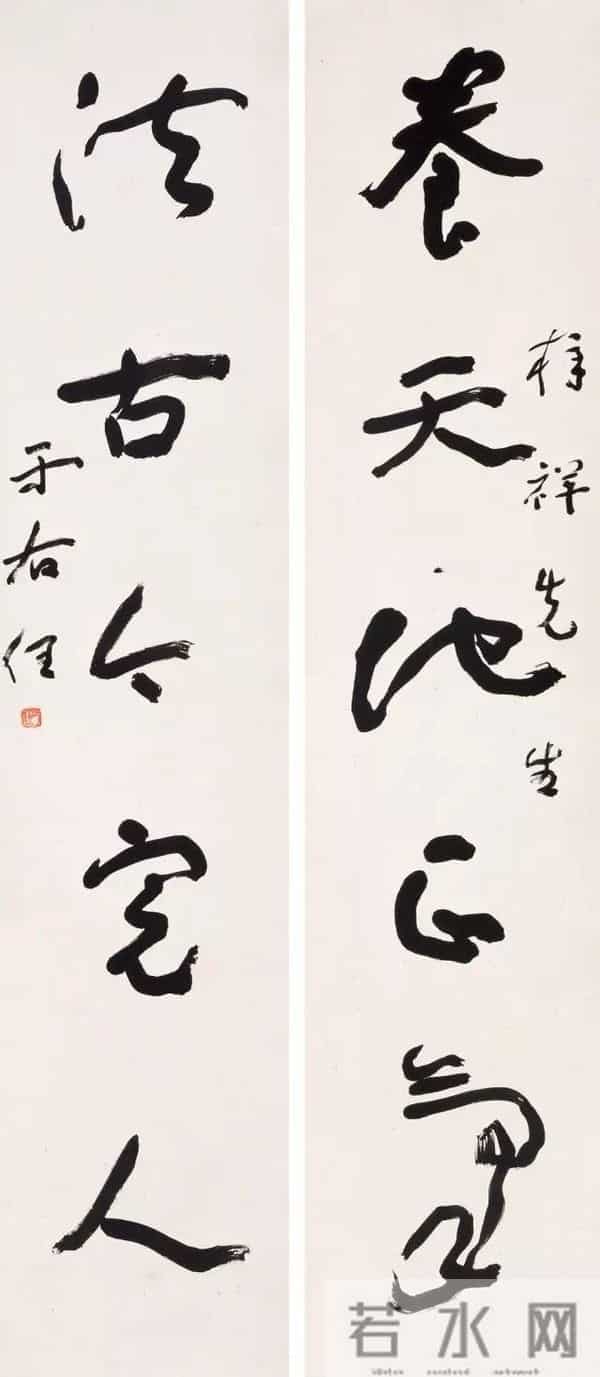 养天地正氣
祥先生
法古今完人
于右任
若水网